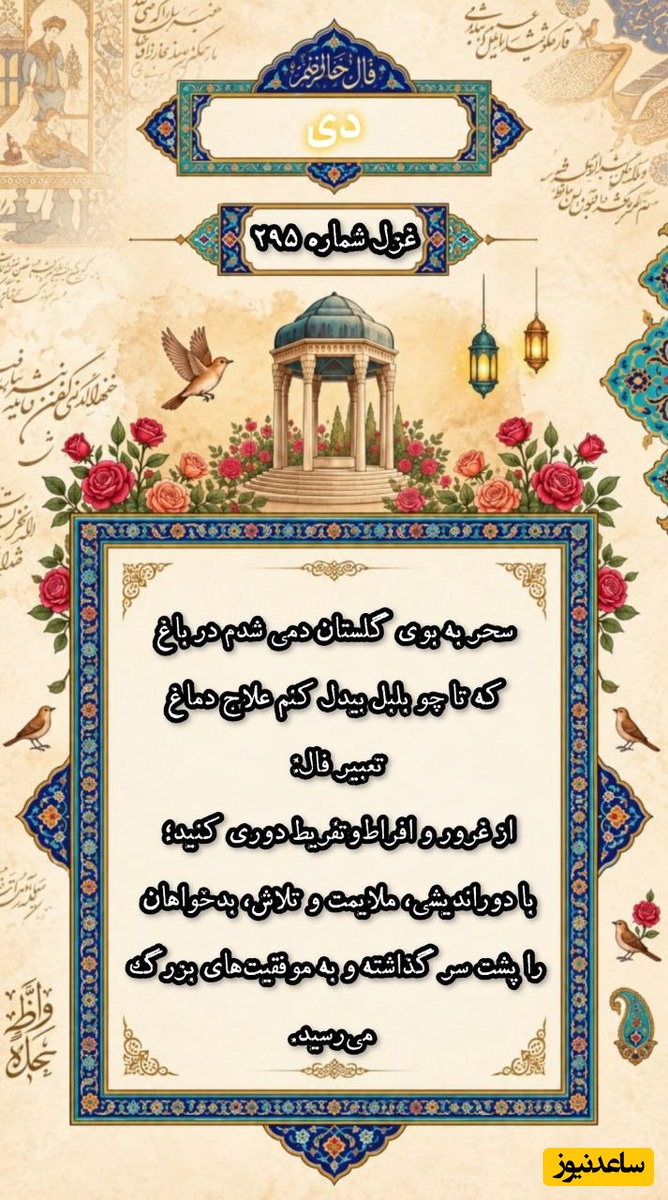 دی
غزل شماره ۲۹۵
سحر به بوی گلستان دمی شدم در باغ
که تا چو بلبل بیدل کنم علاج دماغ
تعبیر فال:
از غرور و افراط‌وتفریط دوری کنید؛
با دوراندیشی، ملایمت و تلاش، بدخواهان
را پشت سر گذاشته و به موفقیت‌های بزرگ
می‌رسید.
ساعدنیوز